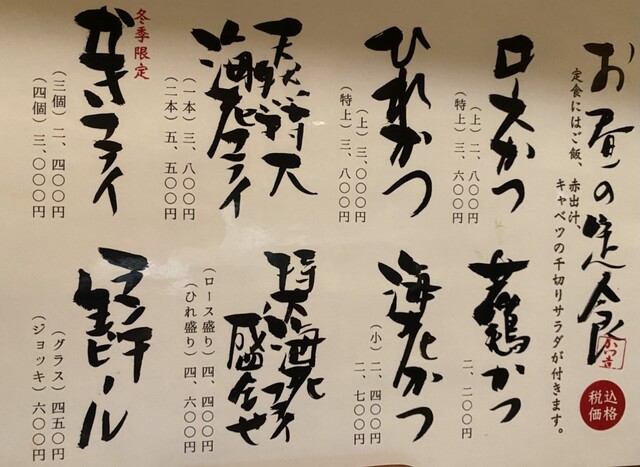 お昼の定食
定食にはご飯、赤出汁、
キャベツの千切りサラダが付きます。
税込価格
ロースかつ
(上)二、八〇〇円
(特上)三、六〇〇円
ひれかつ
(上)三、〇〇〇円
(特上)三、八〇〇円
天然特大
海老フライ
(一本)三、八〇〇円
(二本)五、五〇〇円
冬季限定
かきフライ
(三個)二、四〇〇円
(四個)三、〇〇〇円
若鶏かつ
二、二〇〇円
海老かつ
(小)二、四〇〇円
二、七〇〇円
特大海老フライ
盛合せ
(ロース盛り)四、四〇〇円
(ひれ盛り)四、六〇〇円
生ビール
(グラス)四五〇円
(ジョッキ)六〇〇円